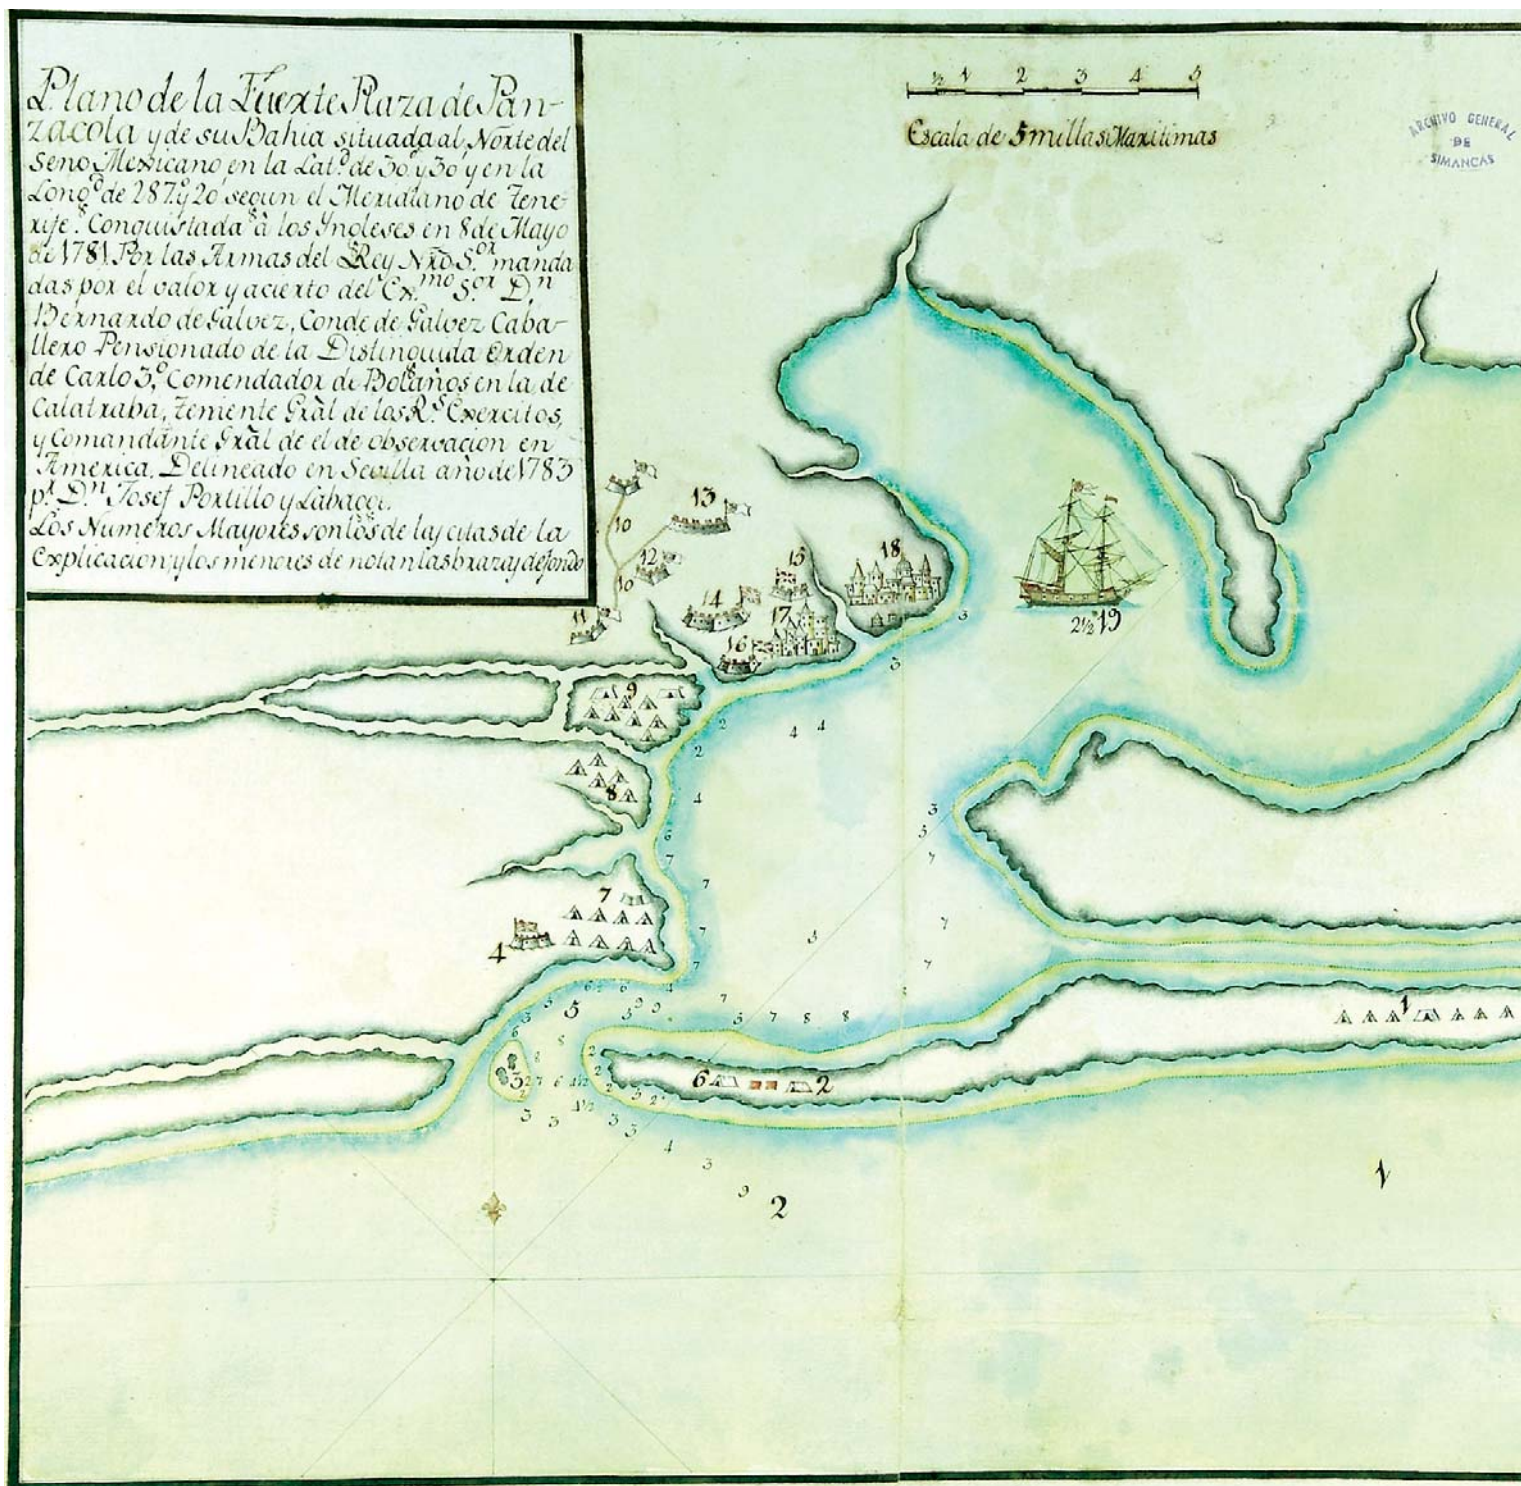 Plano de la Fuerte Plaza de Pan-
zacola y de su Bahia situada al Norte del
Seno Mexicano en la Lat.d de 30 g.s y 30' y en la
Long.d de 287 g.s y 20' segun el Meridiano de Tene-
rife. Conquistada à los Yngleses en 8 de Mayo
de 1781 Por las Armas del Rey Nrõ S.or manda
das por el valor y acierto del Ex.mo S.or D.n
Bernardo de Galvez, Conde de Galvez Caba-
llero Pensionado de la Distinguida Orden
de Carlo 3.o Comendador de Bolaños en la de
Calatraba, Teniente Grãl de los R.s Exercitos,
y Comandante Grãl de el de observacion en
America. Delineado en Sevilla año de 1783
p.r D.n Josef Portillo y Labaggi.
Los Numeros Mayores son los de las citas de la
Explicacion, y los menores denotan las brazas de fondo
½ 1 2 3 4 5
Escala de 5 millas Maritimas
ARCHIVO GENERAL
DE
SIMANCAS
10
13
12
10
11
15
18
14
17
16
2½ 19
3
3
9
2
4 4
2
8
4
3
6
7
7
7
7
7
4
7
7
5
3
2
6
2
1
3
1
2